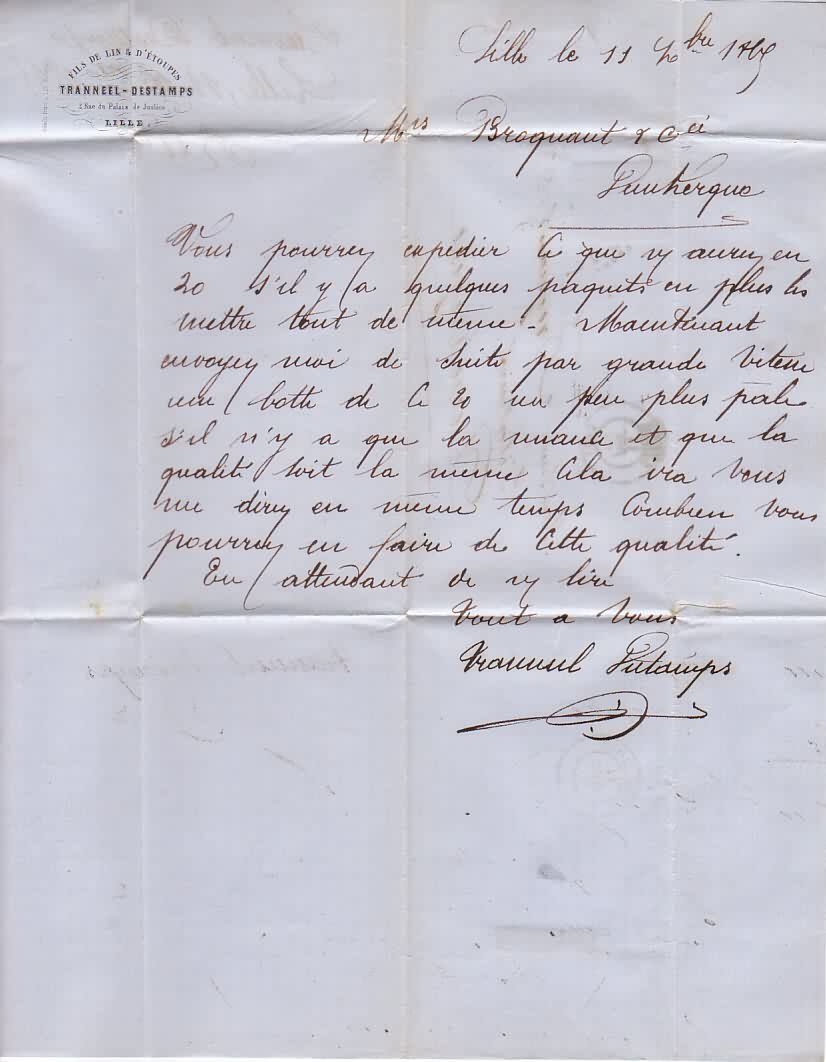 FILS DE LIN & D'ÉTOUPES
TRANNEEL-DESTAMPS
2 Rue du Palais de Justice
LILLE
Lille le 11 xbre 1865
Mrs Broquant & Cie
Dunkerque
Vous pourrez expédier ce que vs aurez en
20 s'il y a quelques paquets en plus les
mettre tout de même. Maintenant
envoyez moi de suite par grande vitesse
une botte de ce 20 un peu plus pale
s'il n'y a que la nuance et que la
qualité soit la même cela ira vous
me direz en même temps combien vous
pourrez en faire de cette qualité.
En attendant de vs lire
Tout a vous
Tranneel Destamps